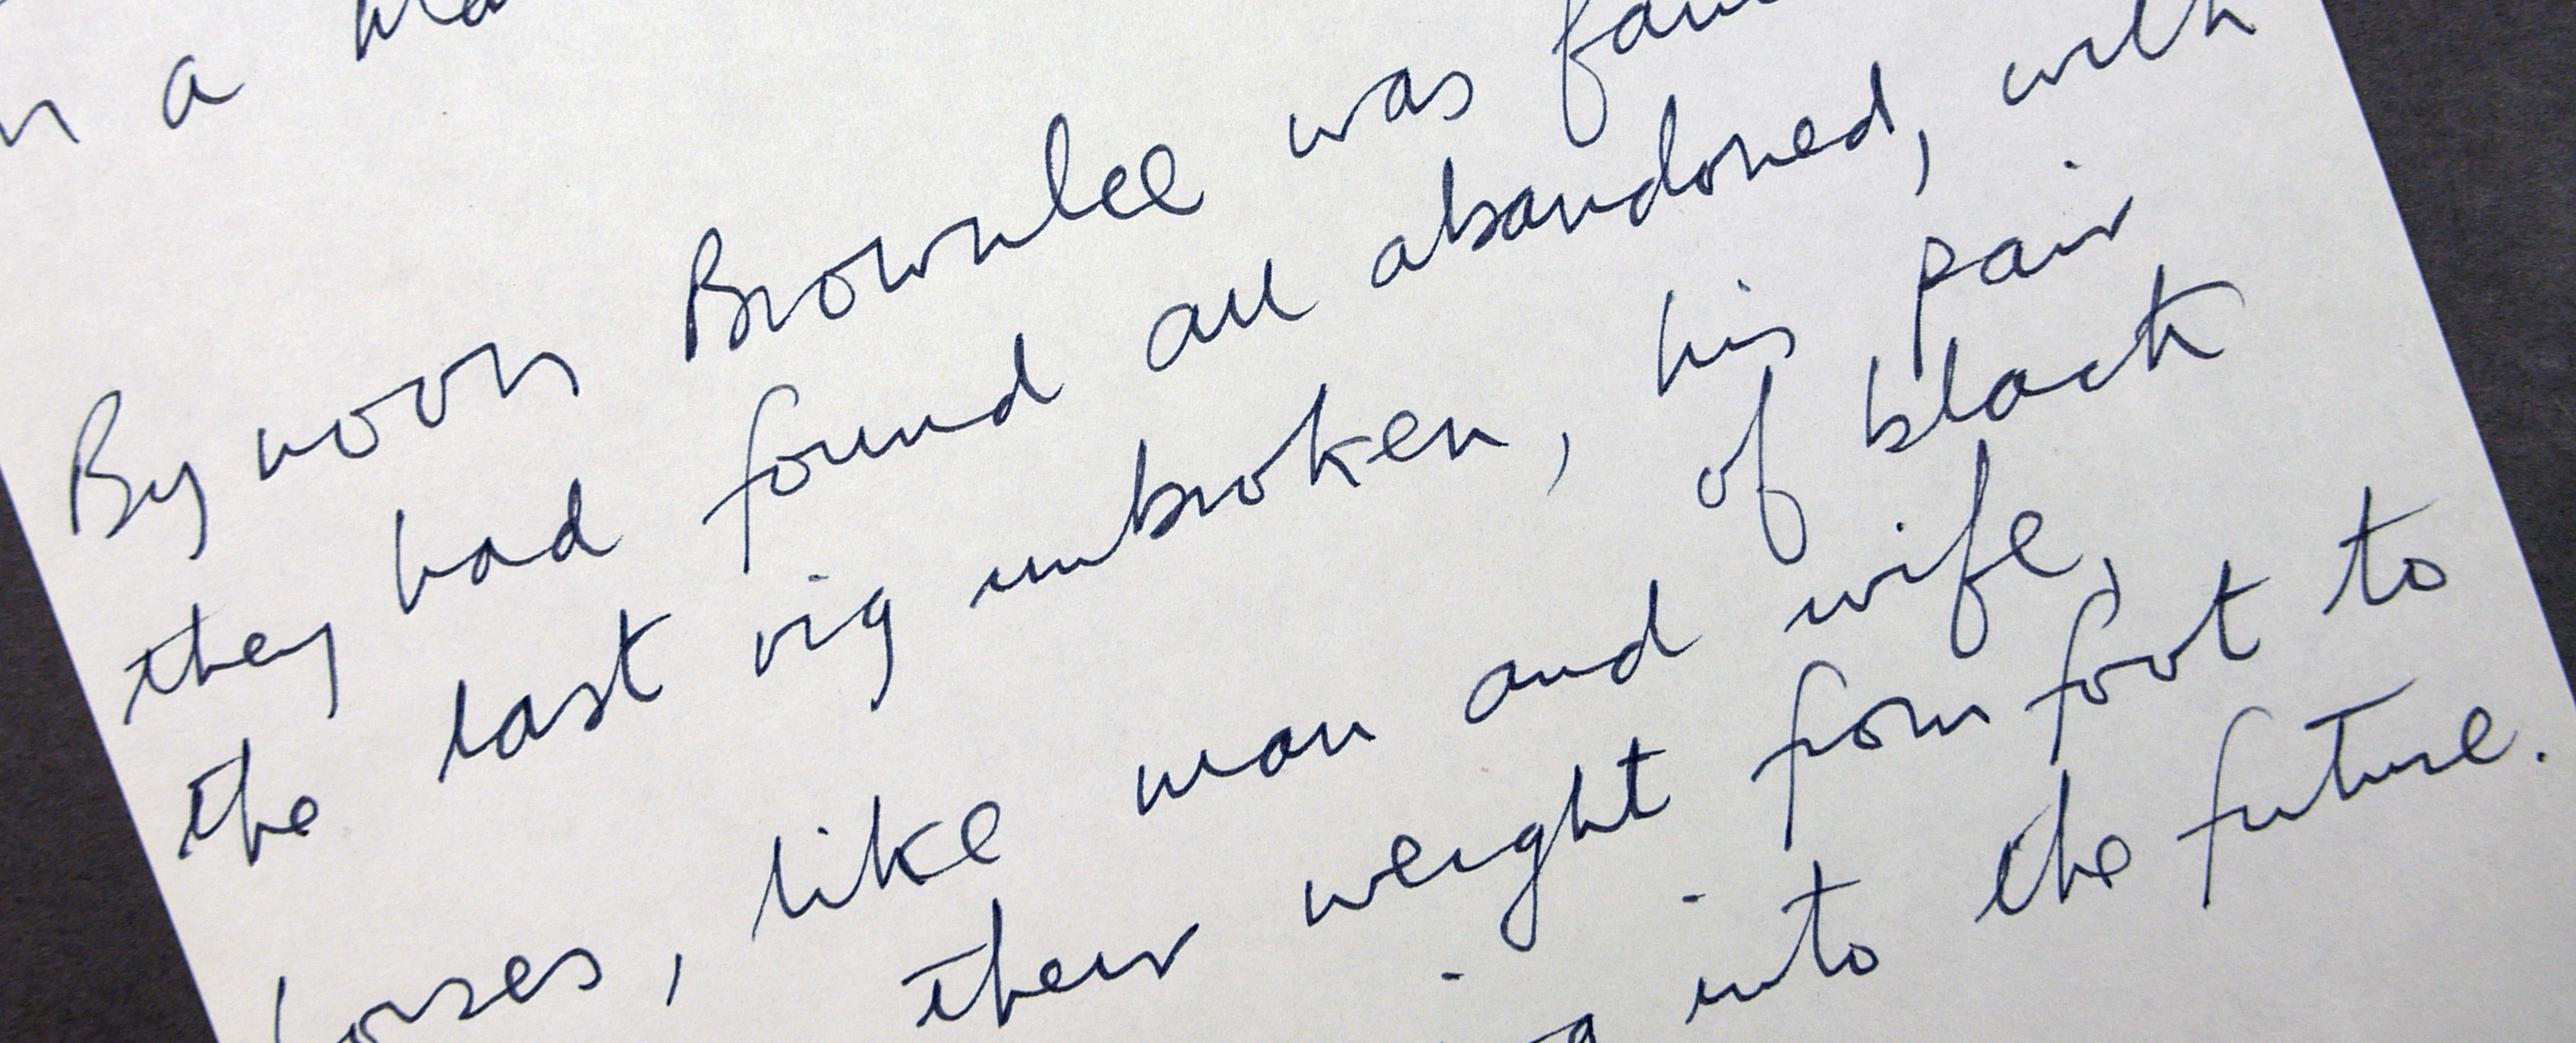 a
By noon Brownlee was
they had found all abandoned, with
the last rig unbroken, his pair
of black
horses, like man and wife,
their weight from foot to
into the future.